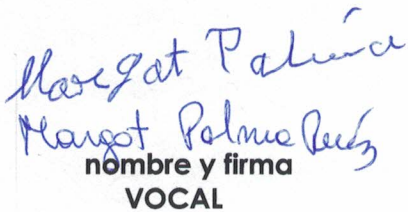 Margat Palma
Margot Palma Ruíz
nombre y firma
VOCAL